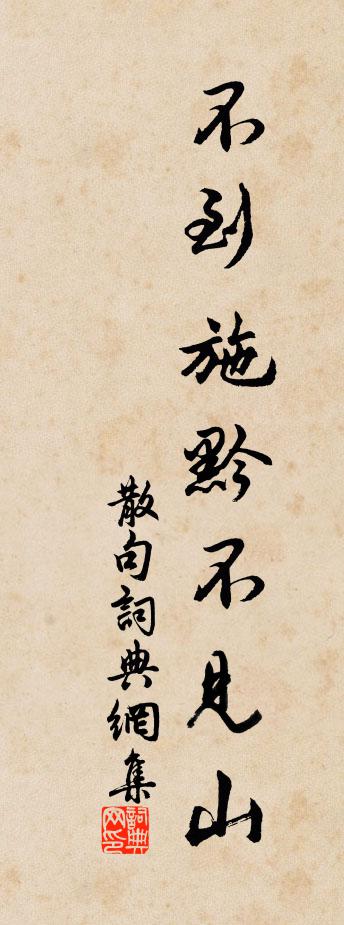 不到施黔不見山
散句詞典網集
詞典网印